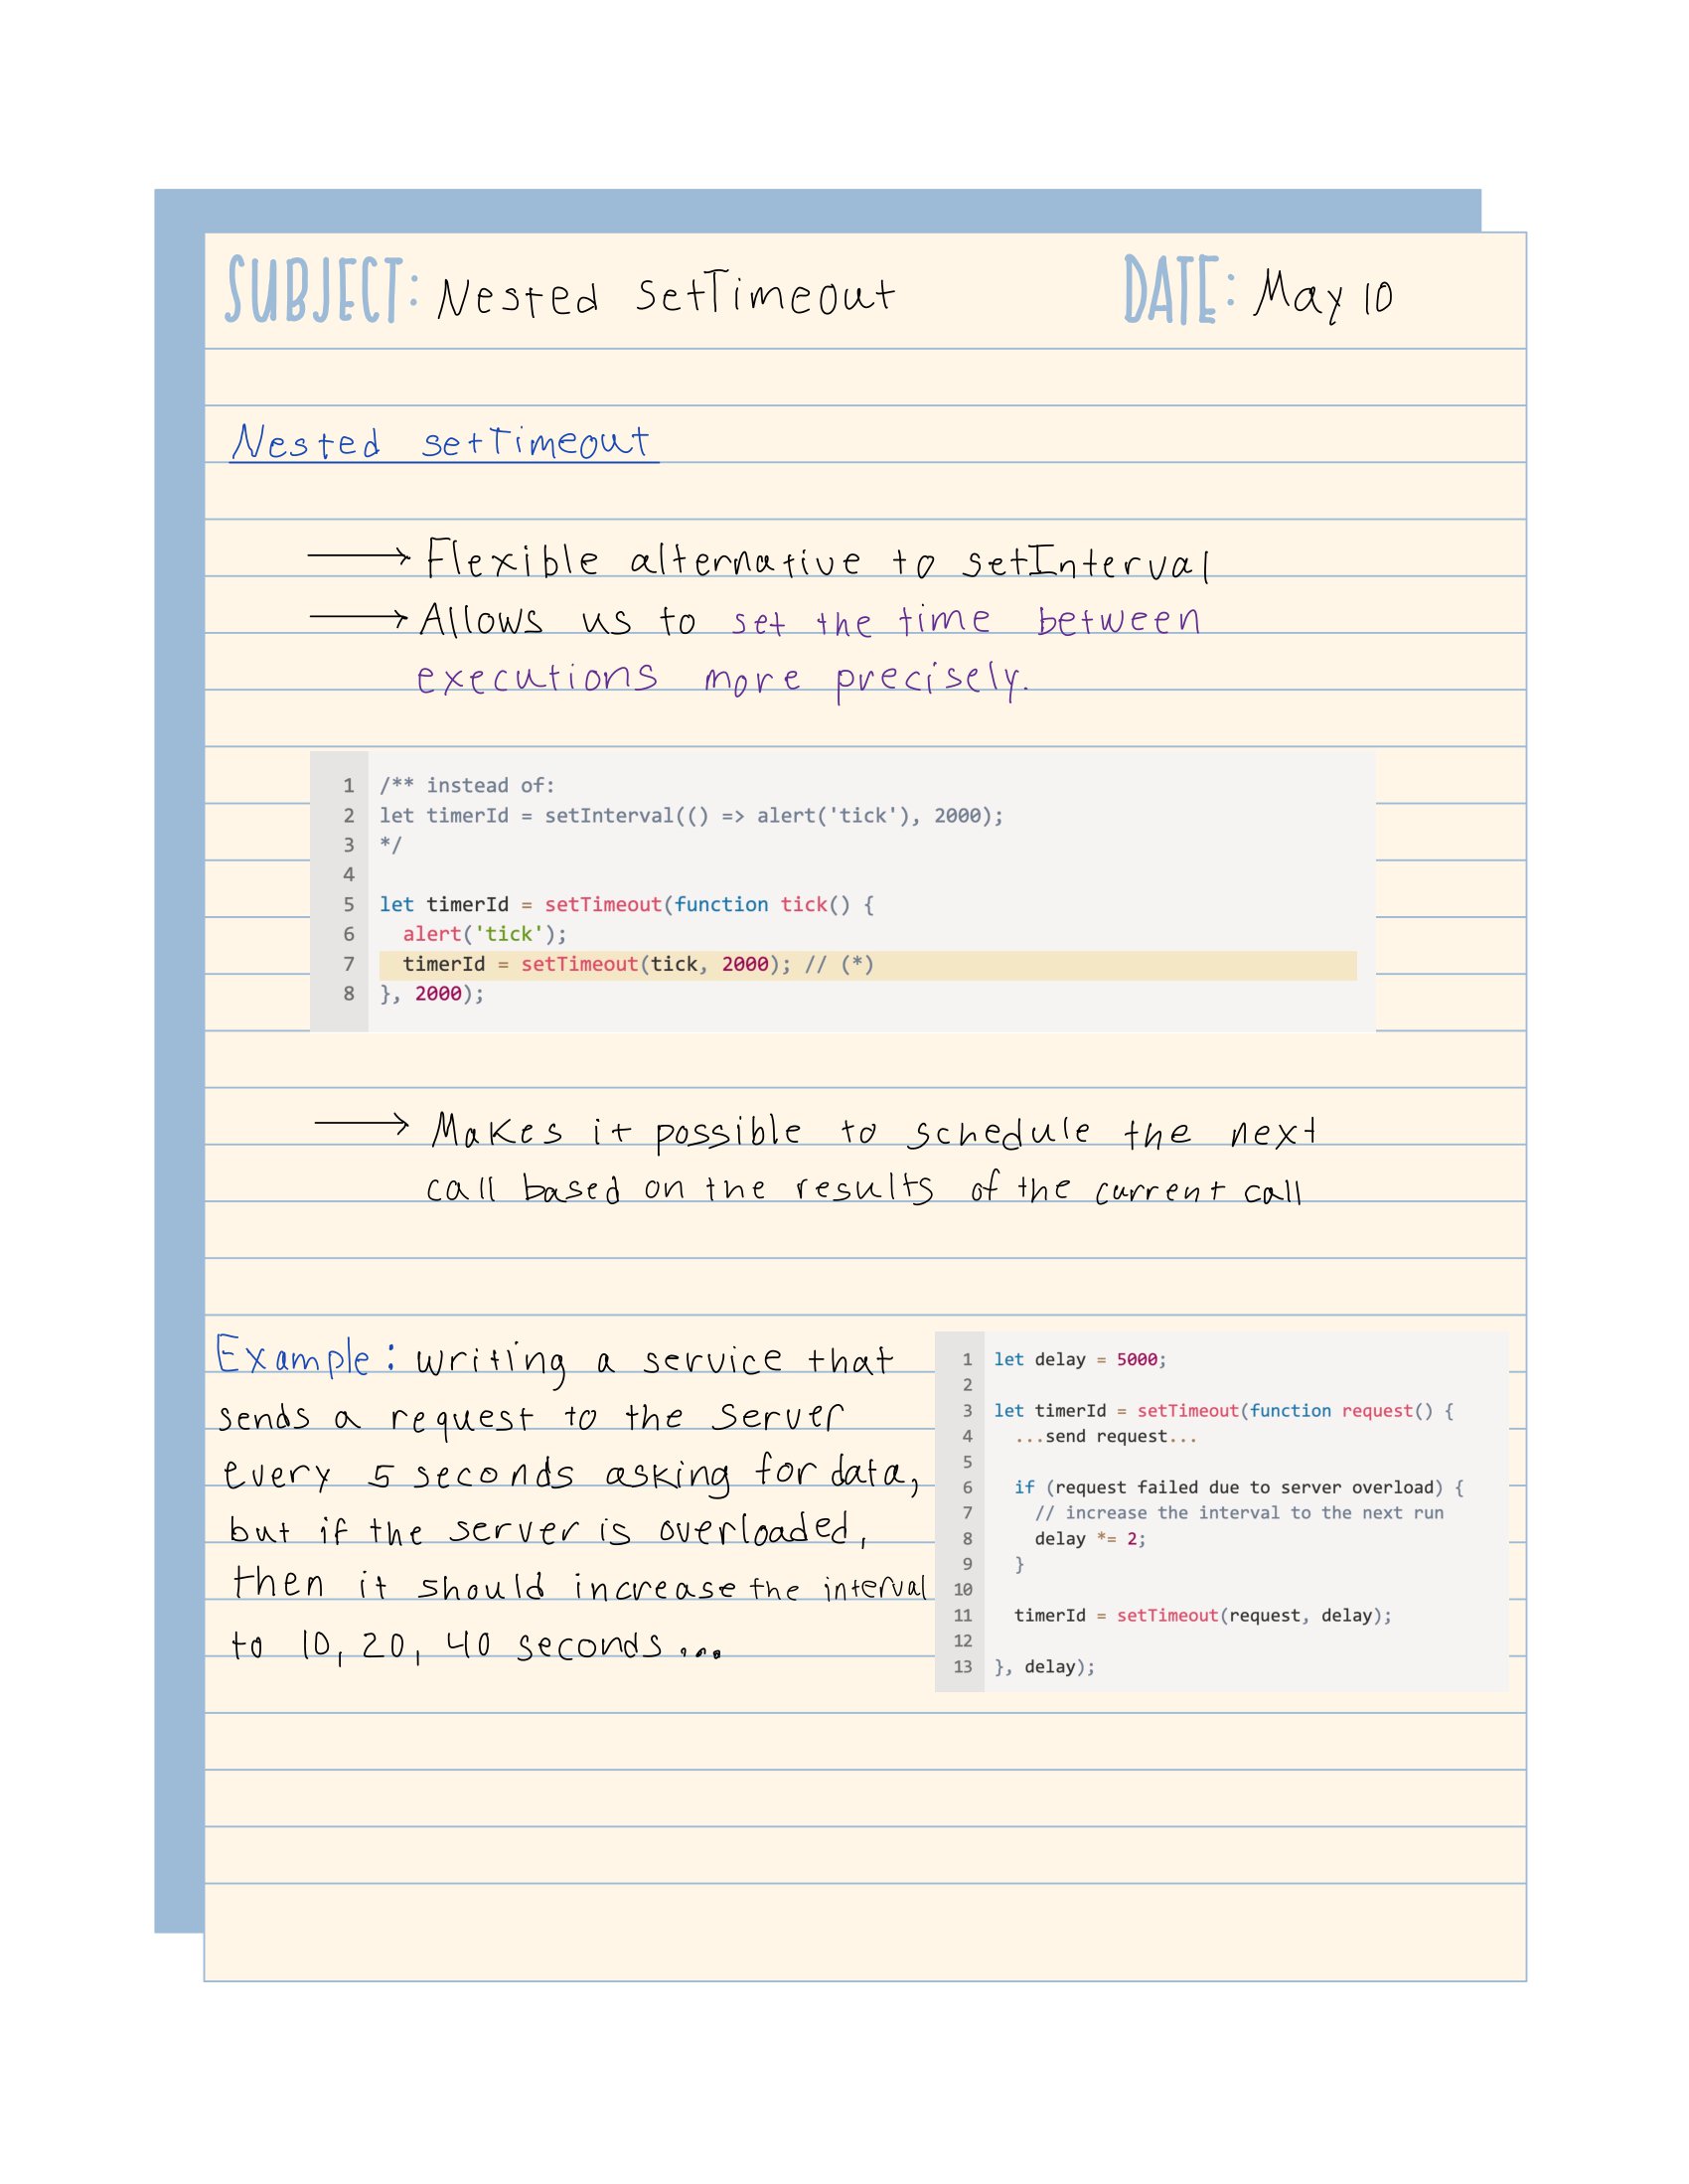 SUBJECT: Nested setTimeout DATE: May 10
Nested setTimeout
→ Flexible alternative to setInterval
→ Allows us to set the time between
executions more precisely.
1 /** instead of:
2 let timerId = setInterval(() => alert('tick'), 2000);
3 */
4
5 let timerId = setTimeout(function tick() {
6   alert('tick');
7   timerId = setTimeout(tick, 2000); // (*)
8 }, 2000);
→ Makes it possible to schedule the next
call based on the results of the current call
Example: writing a service that
sends a request to the server
every 5 seconds asking for data,
but if the server is overloaded,
then it should increase the interval
to 10, 20, 40 seconds...
1 let delay = 5000;
2
3 let timerId = setTimeout(function request() {
4   ...send request...
5
6   if (request failed due to server overload) {
7     // increase the interval to the next run
8     delay *= 2;
9   }
10
11   timerId = setTimeout(request, delay);
12
13 }, delay);